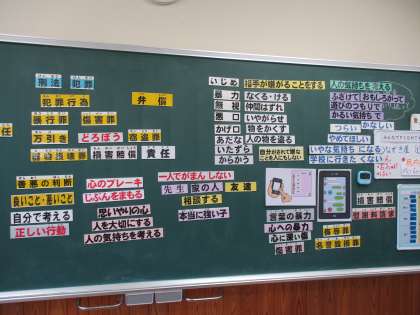 刑法 犯罪
犯罪行為
弁償
暴行罪 傷害罪
責任
万引き どろぼう 窃盗罪
損害賠償 責任
善悪の判断
良いこと・悪いこと
自分で考える
正しい行動
心のブレーキ
じぶんをまもる
思いやりの心
人を大切にする
人の気持ちを考える
一人でがまんしない
先生 家の人 友達
相談する
本当に強い子
いじめ 相手が嫌がることをする
暴力 なくる・ける
無視 仲間はずれ
悪口 いやがらせ
かげ口 物をかくす
あだな 人の物を盗る
いたずら
からかう
自分がされて嫌な
ことを人にもしない
言葉の暴力
心への暴力
心に深い傷
傷害罪
人の気持ちを考える
ふざけて おもしろがって
遊びのつもりで
かるい気持ちで
つらい かなしい
やめてほしい
いやな気持ちになる
学校に行きたくない
損害賠償
侮辱罪
名誉毀損罪